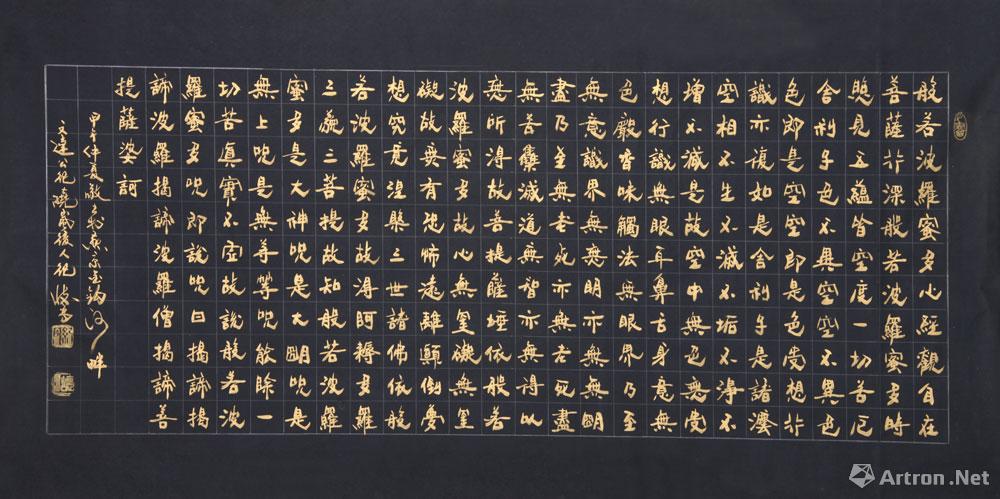 般若波羅蜜多心經觀自在
菩薩行深般若波羅蜜多時
照見五蘊皆空度一切苦厄
舍利子色不異空空不異色
色即是空空即是色受想行
識亦復如是舍利子是諸灋
空相不生不滅不垢不淨不
增不減是故空中無色無受
想行識無眼耳鼻舌身意無
色聲香味觸法無眼界乃至
無意識界無無明亦無無明
盡乃至無老死亦無老死盡
無苦集滅道無智亦無得以
無所得故菩提薩埵依般若
波羅蜜多故心無罣礙無罣
礙故無有恐怖遠離顛倒夢
想究竟涅槃三世諸佛依般
若波羅蜜多故得阿耨多羅
三藐三菩提故知般若波羅
蜜多是大神咒是大明咒是
無上咒是無等等咒能除一
切苦真實不虛故說般若波
羅蜜多咒即說咒曰揭諦揭
諦波羅揭諦波羅僧揭諦菩
提薩婆訶
甲午仲夏敬書於京河畔
文達公紀曉嵐後人紀
Artron.Net